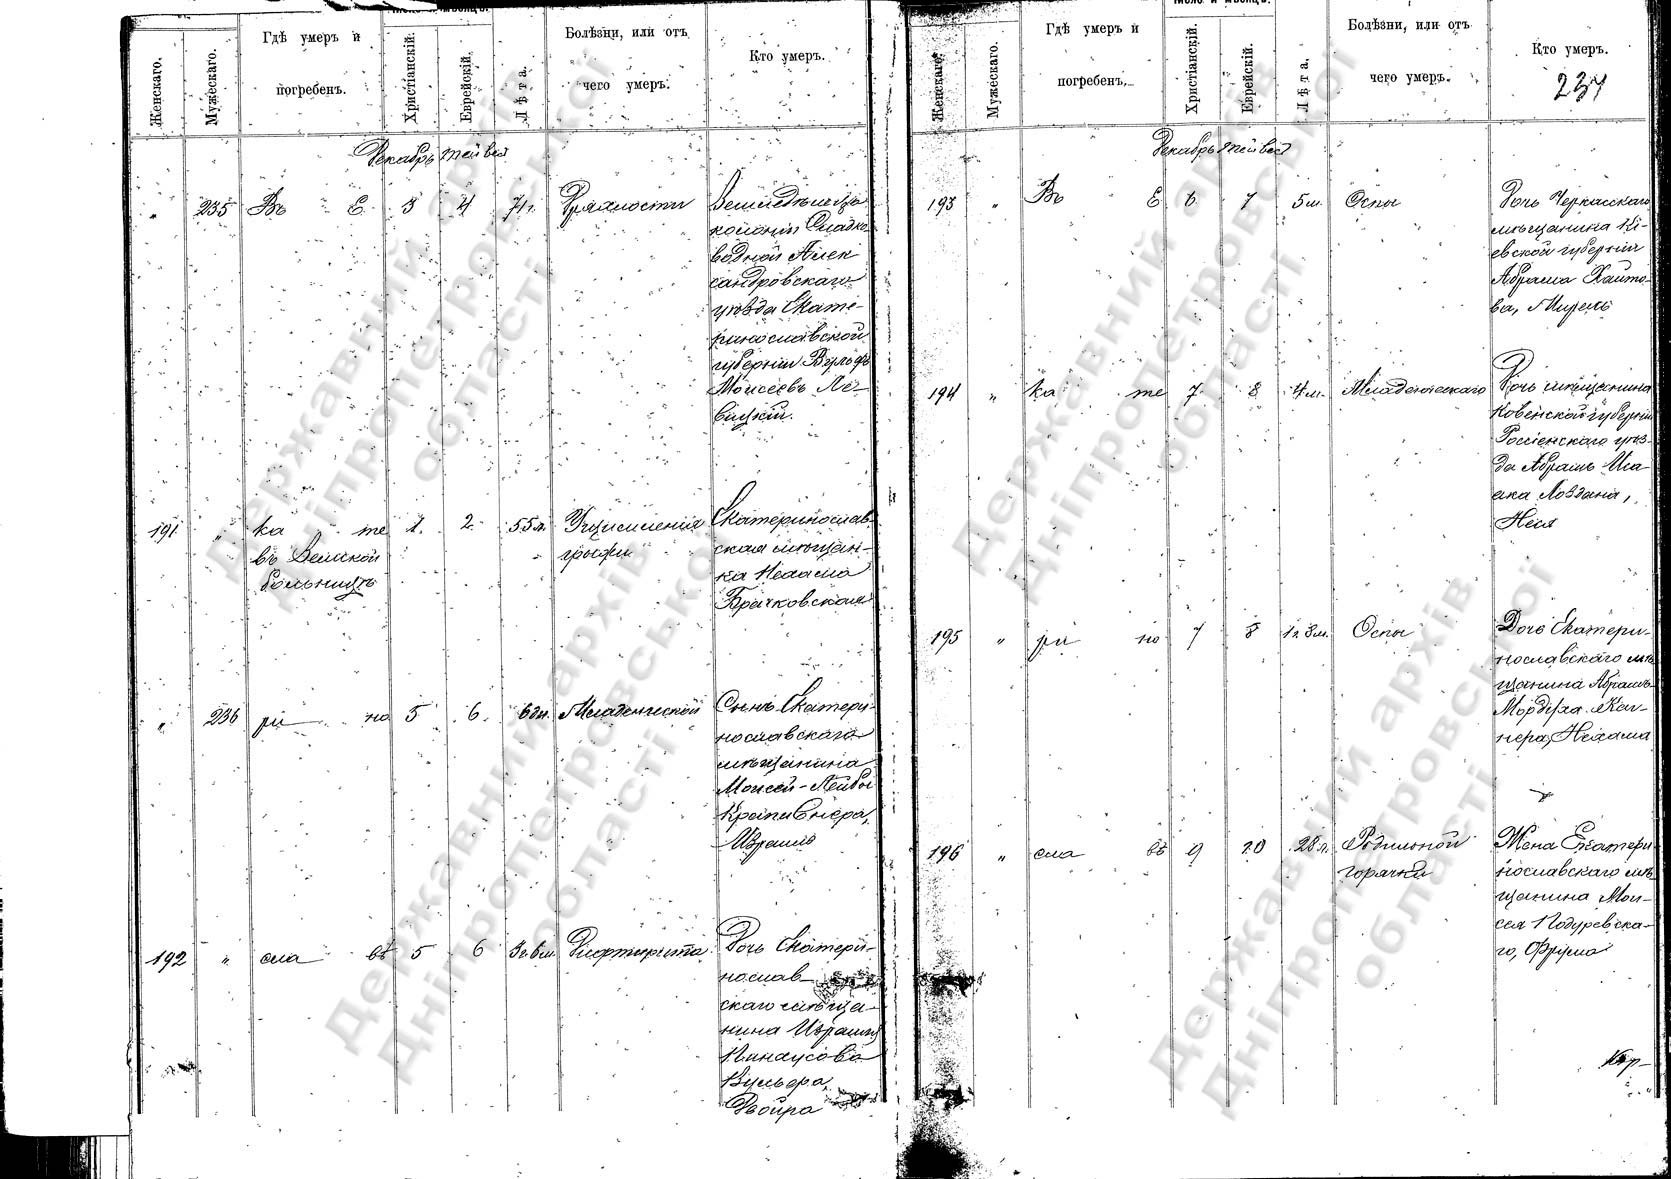 Женскаго.
Мужескаго.
Гдѣ умеръ и
погребенъ.
Число и мѣсяцъ.
Христіанскій.
Еврейскій.
Лѣта.
Болѣзни, или отъ
чего умеръ.
Кто умеръ.
Декабрь Тейвес
" 235 Въ Е 3 4 71 г. Дряхлости
Земледѣлецъ
колоніи Сладко
водной Алек
сандровскаго
уѣзда Екате-
ринославской
губерніи Вульфъ
Моисеевъ Ле-
вицкій.
191 " ка те 1. 2. 55 л. Ущемленія
въ Земской
больницѣ
грыжи
Екатеринослав-
ская мѣщан-
ка Нехама
Брачковская
" 236 ри но 5 6. 6 дн. Младенческой
Сынъ Екатери-
нославскаго
мѣщанина
Моисей-Лейбы
Израиль
192 " сла вѣ 5 6 Дифтерита
Дочь Екатери-
нослав-
скаго мѣща-
нина Израиля
Пинхусова
Двойра
Женскаго.
Мужескаго.
Гдѣ умеръ и
погребенъ.
Число и мѣсяцъ.
Христіанскій.
Еврейскій.
Лѣта.
Болѣзни, или отъ
чего умеръ.
Кто умеръ.
234
Декабрь Тейвес
193 " Въ Е 6 7 5 м. Оспы
Дочь Черкасскаго
мѣщанина Кі-
евской губерніи
Абрама Хаито-
ва, Мирель
194 " ка те 7 8 4 м. Младенческаго
Дочь мѣщанина
Ковенской губерніи
Россіенскаго уѣз-
да Абрамъ Иса-
ака
Неся
195 " ри но 7 8 1 г. 3 м. Оспы
Дочь Екатери-
нославскаго мѣ
щанина Абрамъ-
Мордуха Кац-
нера, Нехама
196 " сла вѣ 9 10 28 л. Родильной
горячки
Жена Екатери
нославскаго мѣ
щанина Мои-
сея Подуревска-
го, Фрума
Державний архів
Дніпропетровської
області
Державний архів
Дніпропетровської
області
Державний архів
Дніпропетровської
області
Державний архів
Дніпропетровської
області